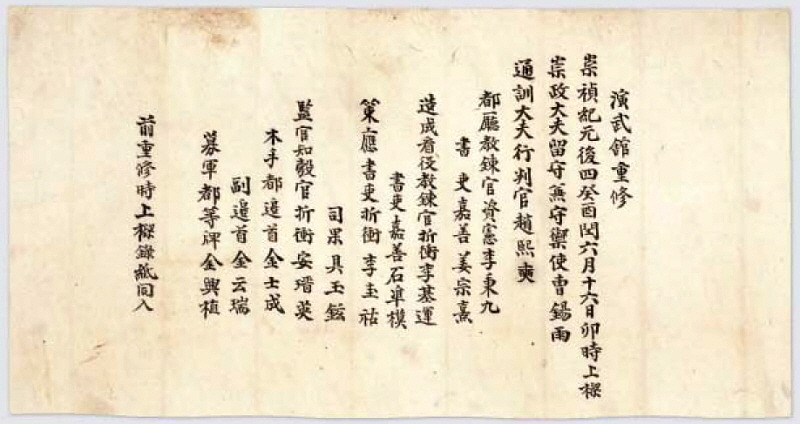 演武館重修
崇禎紀元後四癸酉閏六月十六日卯時上樑
崇政大夫留守兼守禦使曺錫雨
通訓大夫行判官趙熙奭
都廳敎鍊官資憲李秉九
書吏嘉善姜宗熹
造成看役敎鍊官折衝李基運
書吏嘉善石準模
策應書吏折衝李圭祜
司果具玉鉉
監官知彀官折衝安瑨英
木手都邊首金士成
副邊首金云瑞
募軍都等牌金興植
前重修時上樑錄紙同入